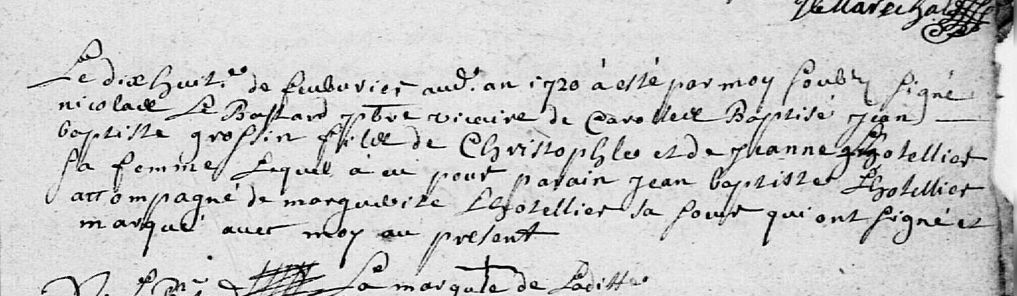 Marechal
Le dixhuit.e de feubvrier aud. an 1720 à esté par moy soub signé
nicolas Le Bastard pbre vicaire de Carolles Baptisé jean
baptiste grossin fils de Christophle et de jeanne Lhotellier
sa femme Lequel à eu pour parain jean baptiste Lhotellier
accompagné de marguerite Lhotellier sa soeur qui ont signé et
marqué avec moy au present
La marque de Laditte